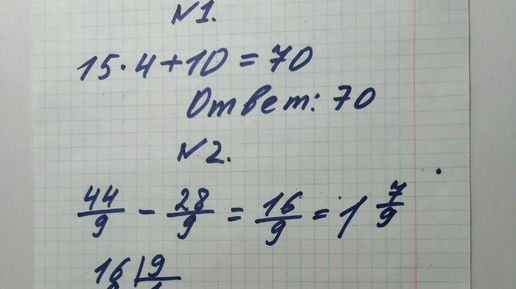 №1.
15·4+10=70
Ответ: 70
№2.
44/9 - 28/9 = 16/9 = 1 7/9
16|9